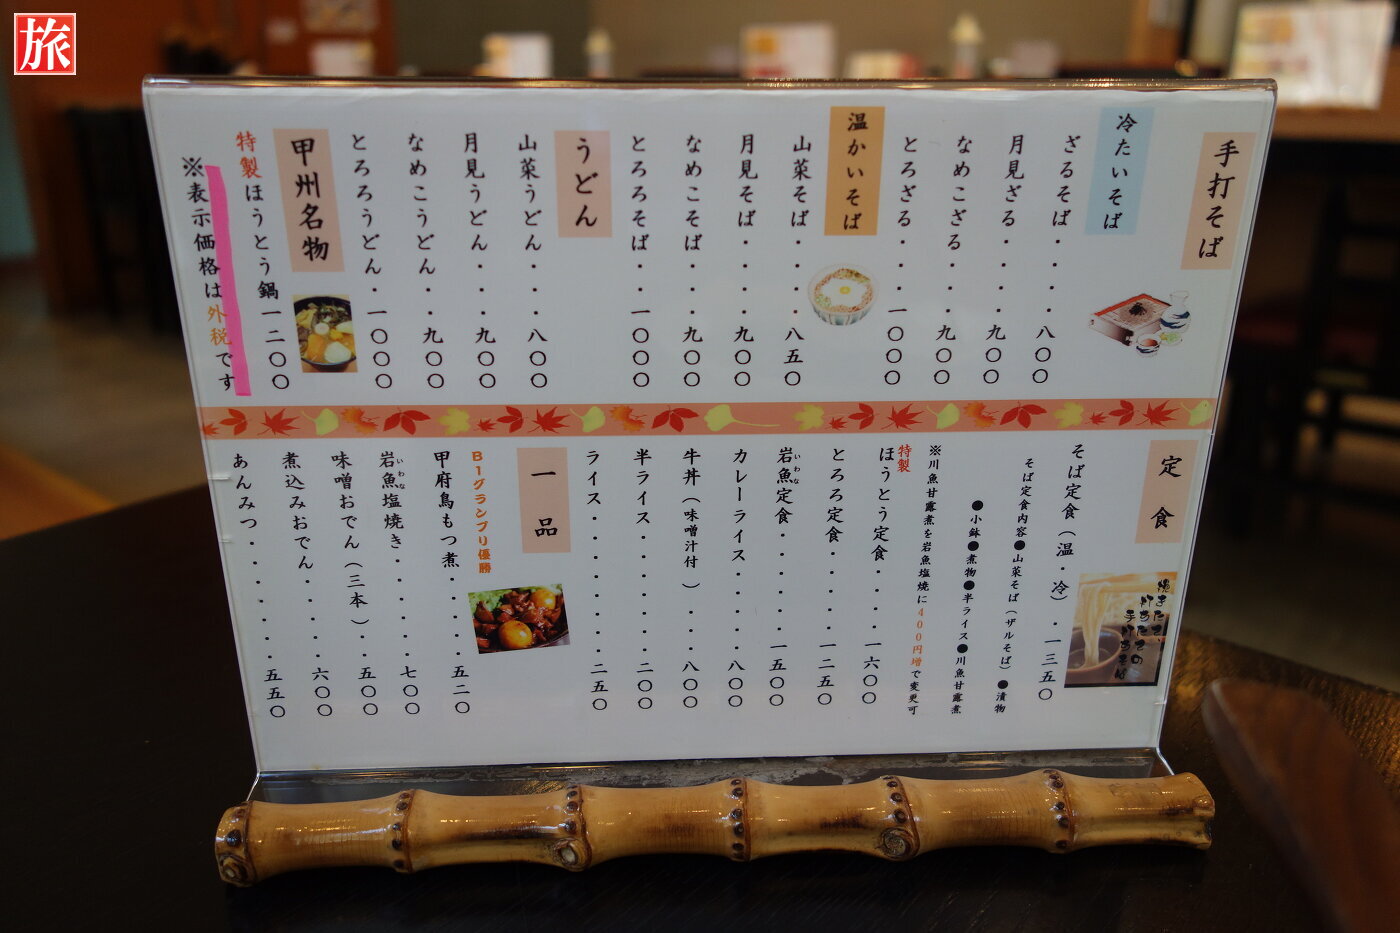 旅
手打そば
冷たいそば
ざるそば・・・・八〇〇
月見ざる・・・・九〇〇
なめこざる・・・九〇〇
とろざる・・・一〇〇〇
温かいそば
山菜そば・・・・八五〇
月見そば・・・・九〇〇
なめこそば・・・九〇〇
とろろそば・・一〇〇〇
うどん
山菜うどん・・・八〇〇
月見うどん・・・九〇〇
なめこうどん・・九〇〇
とろろうどん・一〇〇〇
甲州名物
特製ほうとう鍋一二〇〇
※表示価格は外税です
定食
そば定食(温・冷)・一三五〇
そば定食内容●山菜そば(ザルそば)●漬物
●小鉢●煮物●半ライス●川魚甘露煮
※川魚甘露煮を岩魚塩焼に400円増で変更可
特製
ほうとう定食・・・一六〇〇
とろろ定食・・・・一二五〇
岩魚定食・・・・・一五〇〇
いわな
カレーライス・・・・八〇〇
牛丼(味噌汁付)・・八〇〇
半ライス・・・・・・二〇〇
ライス・・・・・・・二五〇
一品
B1グランプリ優勝
甲府鳥もつ煮・・・・五二〇
岩魚塩焼き・・・・・七〇〇
いわな
味噌おでん(三本)・五〇〇
煮込みおでん・・・・六〇〇
あんみつ・・・・・・五五〇